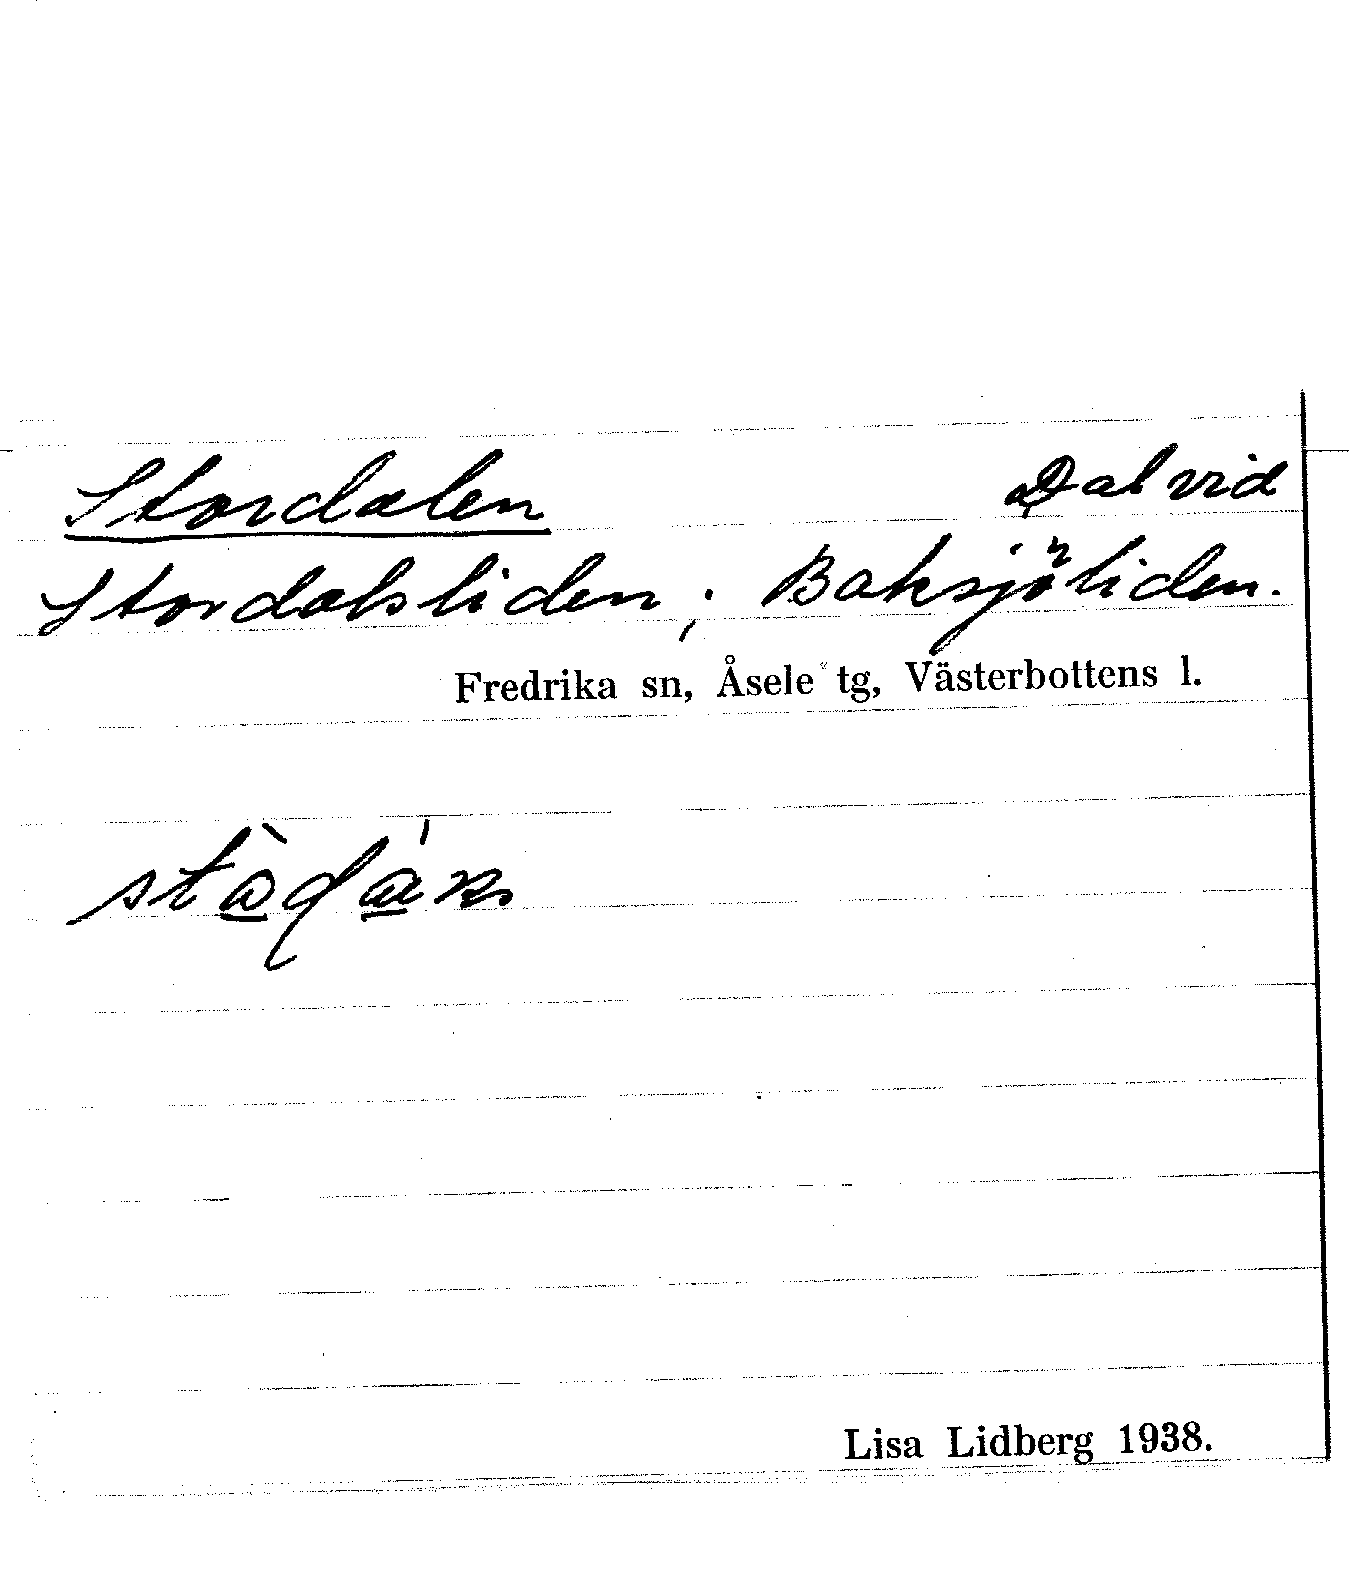 Stordalen Dal vid
Stordalsliden, Baksjöliden.
Fredrika sn, Åsele tg, Västerbottens l.
Lisa Lidberg 1938.